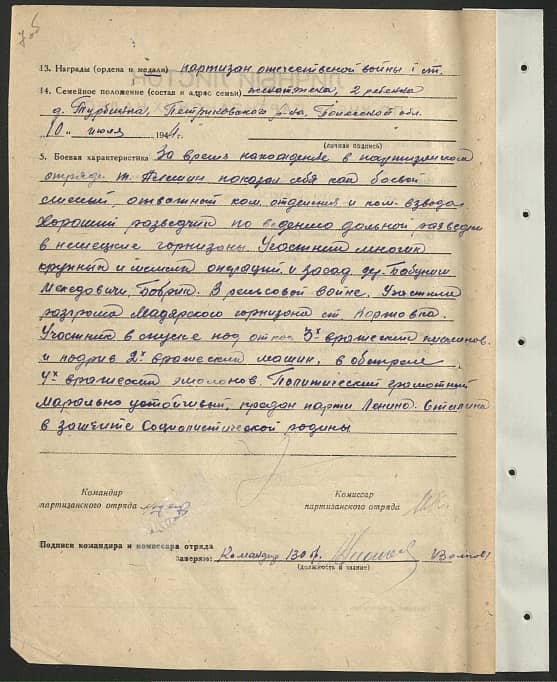 13. Награды (ордена и медали) партизан отечественной войны I ст.
14. Семейное положение (состав и адрес семьи) 2 ребенка
д. Петриковского р-на,
10 июля 1944 г.
(личная подпись)
5. Боевая характеристика За время нахождение в партизанском
отряде т. показал себя как боевой
смелый, отважный ком. отделения и ком. взвода.
Хороший разведчик по ведению дальной разведки
в немецкие горнизоны. Участник многих
крупных и мелких операций и засад
Бобрик. В рельсовой войне. Участник
розгрома Мадярского горнизона ст. Коржовка.
Участник в спуске под откос 3х вражеских эшелонов.
и подрыв 2х вражеских машин, в обстреле
4х вражеских эшолонов. Политический грамотный
Марально устойчивый, предан парти Ленина-Сталина
в защите Социалистической родины
Командир
партизанского отряда
Комиссар
партизанского отряда
Подписи командира и комиссара отряда
заверяю: Командир 130 бр.
(должность и звание)